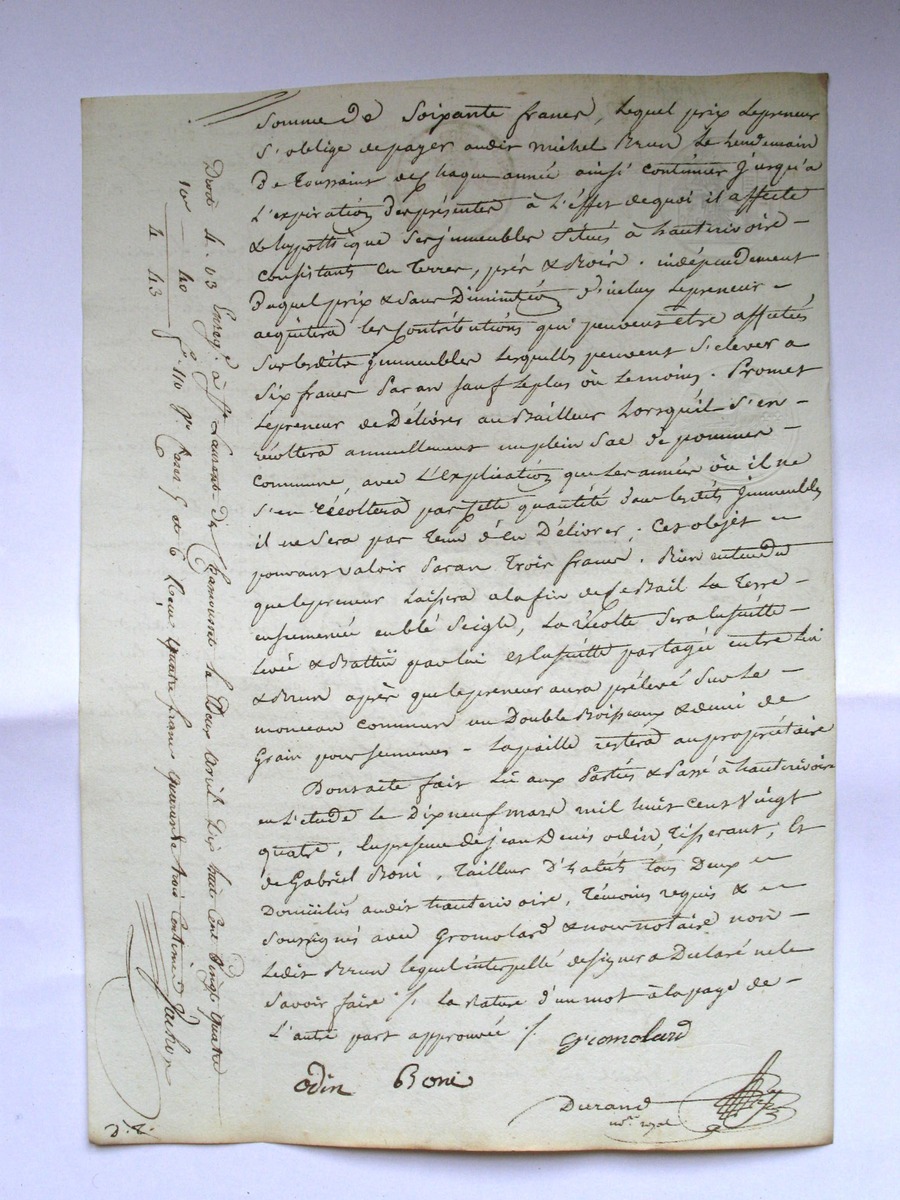 Somme de Soixante francs, Lequel prix Lepreneur
S'oblige depayer audit michel Brun Le Lendemain
de Toussaint de chaque année ainsi continuer Jusqu'a
L'expiration desprésentes à L'effet dequoi il affecte
& hypothèque Ses jmmeubles Situés à hauterivoire -
Consistants En Terres, prés & Bois. indépendement
duquel prix & Sans Diminution d'iceluy Lepreneur -
acquittera les Contributions qui peuvent être affectées
Sur lesdits jmmeubles Lesquelles peuvent S'elever a
Six francs Par an Sauf Leplus ou Lemoins. Promet
Lepreneur de Délivrer au Bailleur Lorsquil S'en -
récoltera annuellement un plein Sac de pommes -
Commune, avec L'explication que Les années où il ne
S'en récoltera pas Cette quantité dans lesdits Jmmeubles
il ne Sera pas Tenu d'en Délivrer, Cet objet -
pouvant valoir Par an Trois francs. Bien entendu
que Lepreneur Laissera à la fin de Ce Bail La Terre -
ensemencée en blé Seigle, La récolte Sera Ensuitte -
Levée & Battüe par lui et Ensuitte partagée entre Lui
& Brun après que Lepreneur aura prélevé Sur Le -
monceau commun un Double Boisseaux & demi de
Grain pour Semences - La paille restera au propriétaire
Dont acte fait Lû aux Parties & Passé à hauterivoire
en L'etude Le Dix neuf mars mil huit Cent Vingt
quatre, En présence de jean Denis odin, Tisserant, Et
de Gabriel Boni, Tailleur D'habits tous Deux -
Domiciliés audit hauterivoire, Témoins requis & -
Soussignés avec Gromolard & nous notaire non -
Ledit Brun lequel interpellé de signer a Déclaré ne le
Savoir faire ./. La Rature d'un mot à la page de -
L'autre part approuvée ./.
Gromolard
odin Boni
Durand
no.re royal
D. R.
Enreg.é à S.t Laurent De Chamousset le Deux Avril Dix huit Cent Vingt quatre
f.o 110 Cases 5 et 6 Reçu quatre francs quarante trois Centimes
10
40
4 43